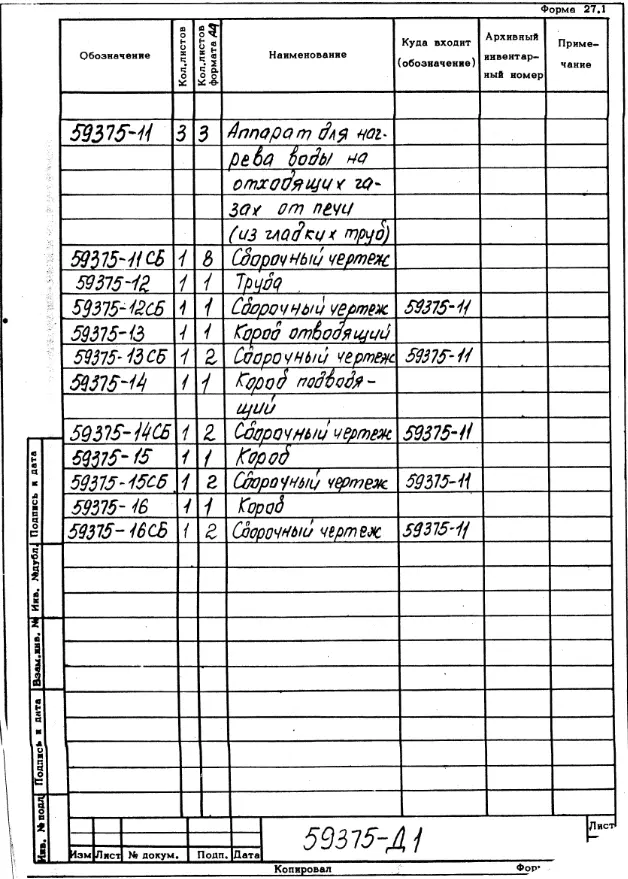 Форма 27.1
Обозначение Кол.листов Кол.листов формата А4 Наименование Куда входит (обозначение) Архивный инвентар- ный номер Приме- чание
59375-11 3 3 Аппарат для наг-
рева воды на
отходящих га-
зах от печи
(из гладких труб)
59375-11СБ 1 8 Сборочный чертеж
59375-12 1 1 Труба
59375-12СБ 1 1 Сборочный чертеж 59375-11
59375-13 1 1 Короб отводящий
59375-13СБ 1 2 Сборочный чертеж 59375-11
59375-14 1 1 Короб подводя-
щий
59375-14СБ 1 2 Сборочный чертеж 59375-11
59375-15 1 1 Короб
59375-15СБ 1 2 Сборочный чертеж 59375-11
59375-16 1 1 Короб
59375-16СБ 1 2 Сборочный чертеж 59375-11
Подпись и дата
Инв. №дубл.
Взам.инв. №
Подпись и дата
Инв. №подл
59375-Д1
Лист
Изм Лист № докум. Подп. Дата
Копировал Фор